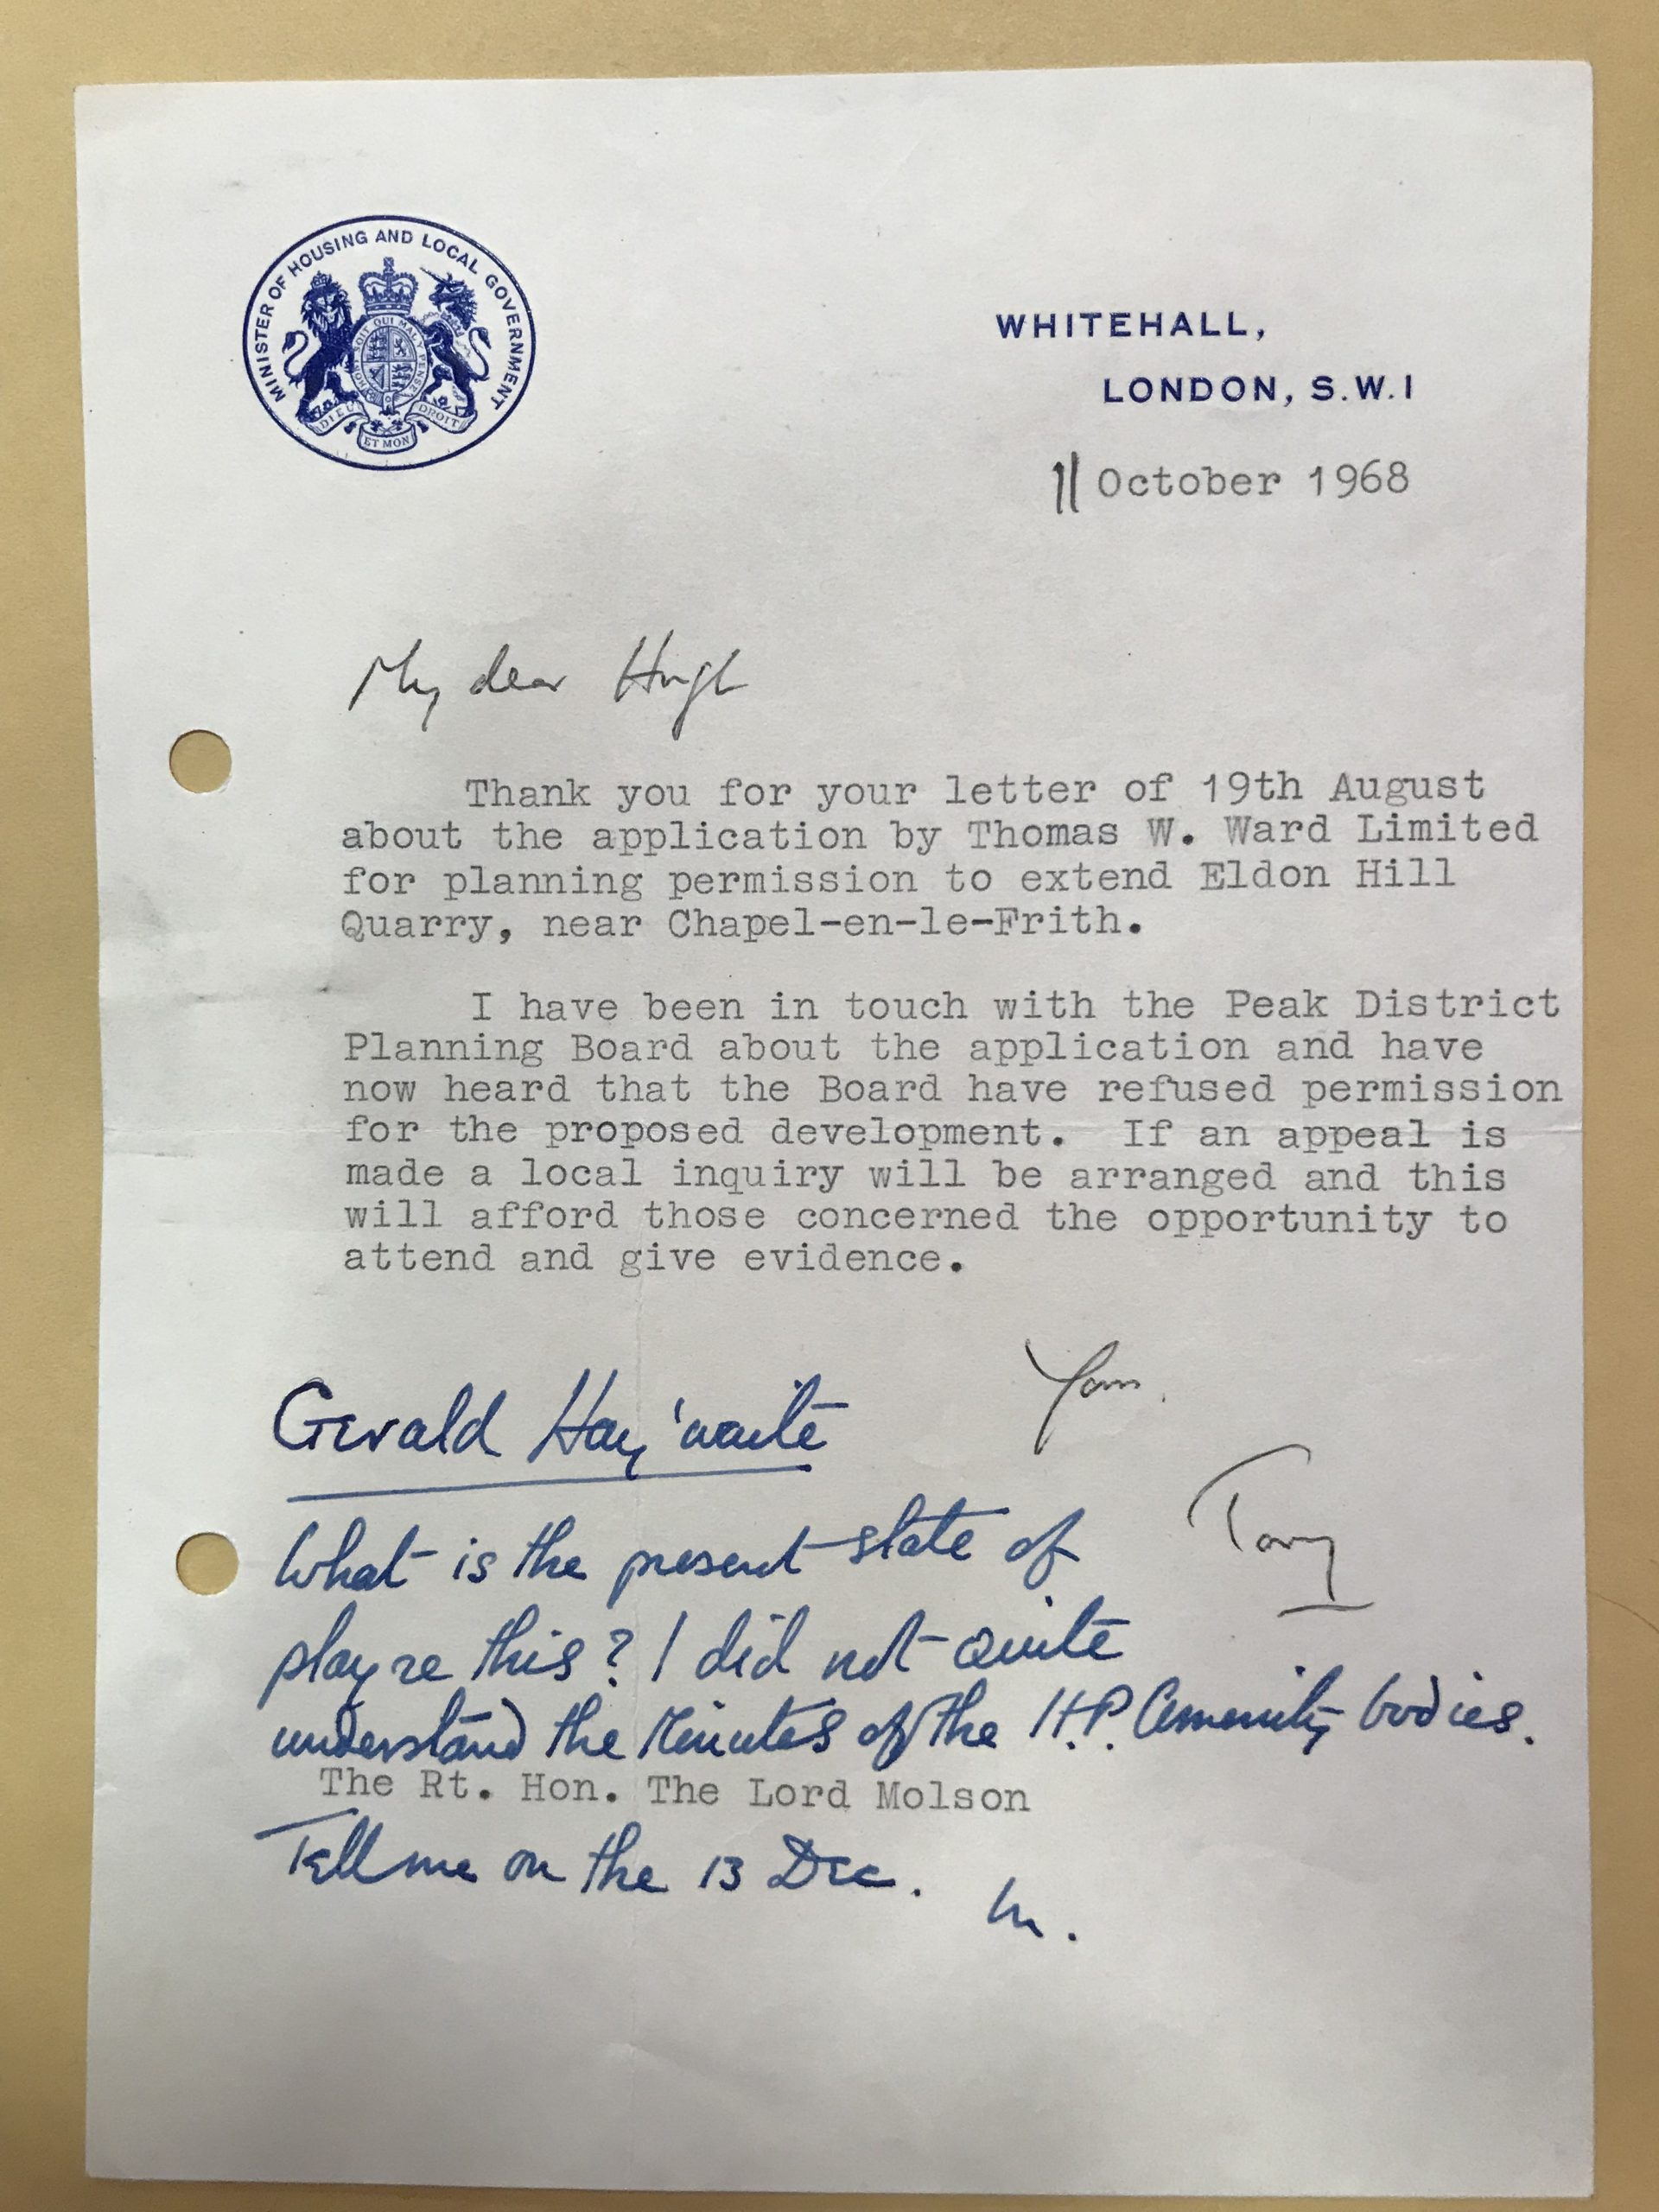 MINISTER OF HOUSING AND LOCAL GOVERNMENT
HONI SOIT QUI MAL Y PENSE
DIEU ET MON DROIT
WHITEHALL,
LONDON, S.W.1
11 October 1968
My dear Hugh
Thank you for your letter of 19th August
about the application by Thomas W. Ward Limited
for planning permission to extend Eldon Hill
Quarry, near Chapel-en-le-Frith.
I have been in touch with the Peak District
Planning Board about the application and have
now heard that the Board have refused permission
for the proposed development. If an appeal is
made a local inquiry will be arranged and this
will afford those concerned the opportunity to
attend and give evidence.
Yours.
Tony
Gerald Hay'waite
What is the present state of
play re this? I did not quite
understand the Minutes of the H.P. Amenity bodies.
The Rt. Hon. The Lord Molson
Tell me on the 13 Dec.
M.